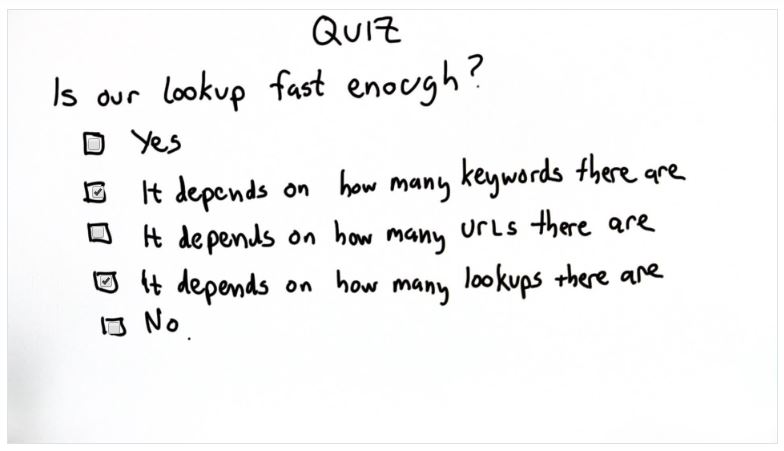 QUIZ
Is our lookup fast enough?
Yes
It depends on how many keywords there are
It depends on how many URLs there are
It depends on how many lookups there are
No.